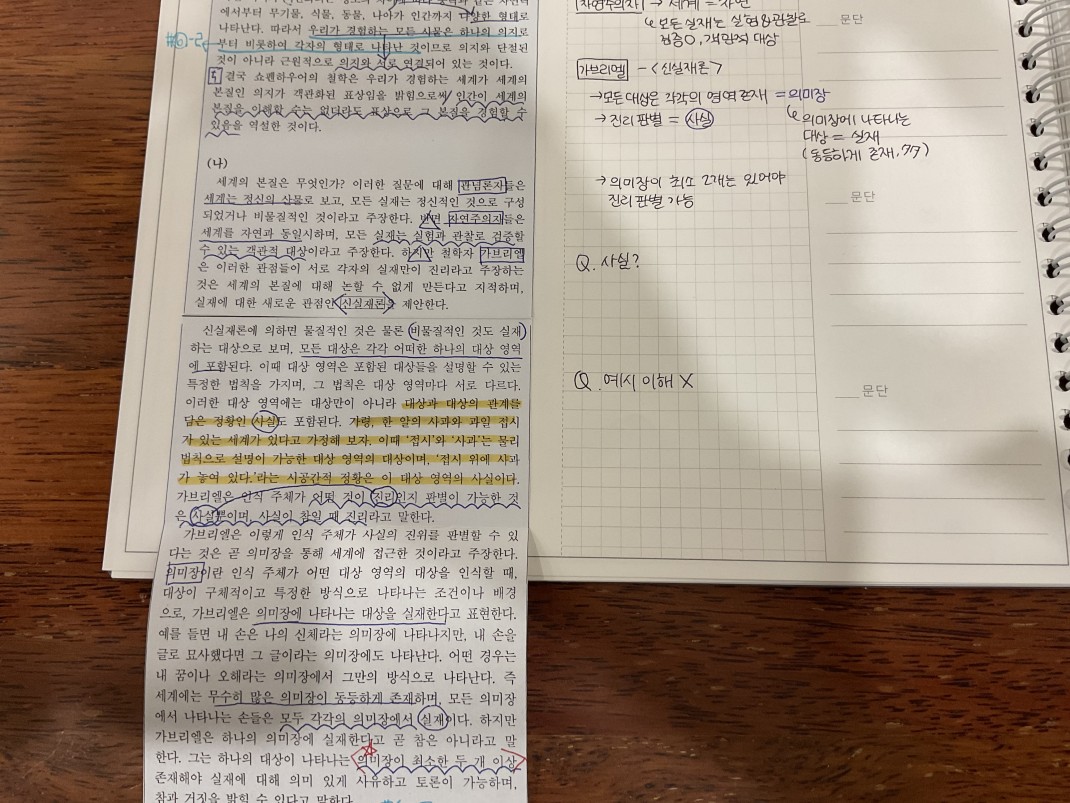 에서부터 무기물, 식물, 동물, 나아가 인간까지 다양한 형태로
나타난다. 따라서 우리가 경험하는 모든 사물은 하나의 의지로
부터 비롯하여 각자의 형태로 나타난 것이므로 의지와 단절된
것이 아니라 근원적으로 의지와 서로 연결되어 있는 것이다.
결국 쇼펜하우어의 철학은 우리가 경험하는 세계가 세계의
본질인 의지가 객관화된 표상임을 밝힘으로써 인간이 세계의
본질을 이해할 수는 없더라도 표상으로 그 본질을 경험할 수
있음을 역설한 것이다.
(나)
세계의 본질은 무엇인가? 이러한 질문에 대해 관념론자들은
세계는 정신의 산물로 보고, 모든 실재는 정신적인 것으로 구성
되었거나 비물질적인 것이라고 주장한다. 반면 자연주의자들은
세계를 자연과 동일시하며, 모든 실재는 실험과 관찰로 검증할
수 있는 객관적 대상이라고 주장한다. 하지만 철학자 가브리엘
은 이러한 관점들이 서로 각자의 실재만이 진리라고 주장하는
것은 세계의 본질에 대해 논할 수 없게 만든다고 지적하며,
실재에 대한 새로운 관점인 신실재론을 제안한다.
신실재론에 의하면 물질적인 것은 물론 비물질적인 것도 실재
하는 대상으로 보며, 모든 대상은 각각 어떠한 하나의 대상 영역
에 포함된다. 이때 대상 영역은 포함된 대상들을 설명할 수 있는
특정한 법칙을 가지며, 그 법칙은 대상 영역마다 서로 다르다.
이러한 대상 영역에는 대상만이 아니라 대상과 대상의 관계를
담은 정황인 사실도 포함된다. 가령, 한 알의 사과와 과일 접시
자 있는 세계가 있다고 가정해 보자. 이때 '접시'와 '사과'는 물리
법칙으로 설명이 가능한 대상 영역의 대상이며, '접시 위에 사과
가 놓여 있다.'라는 시공간적 정황은 이 대상 영역의 사실이다.
가브리엘은 인식 주체가 어떤 것이 진리인지 판별이 가능한 것
은 사실뿐이며, 사실이 참일 때 진리라고 말한다.
가브리엘은 이렇게 인식 주체가 사실의 진위를 판별할 수 있
다는 것은 곧 의미장을 통해 세계에 접근한 것이라고 주장한다.
의미장이란 인식 주체가 어떤 대상 영역의 대상을 인식할 때,
대상이 구체적이고 특정한 방식으로 나타나는 조건이나 배경
으로, 가브리엘은 의미장에 나타나는 대상을 실재한다고 표현한다.
예를 들면 내 손은 나의 신체라는 의미장에 나타나지만, 내 손을
글로 묘사했다면 그 글이라는 의미장에도 나타난다. 어떤 경우는
내 꿈이나 오해라는 의미장에서 그만의 방식으로 나타난다. 즉
세계에는 무수히 많은 의미장이 동등하게 존재하며, 모든 의미장
에서 나타나는 손들은 모두 각각의 의미장에서 실재이다. 하지만
가브리엘은 하나의 의미장에 실재한다고 곧 참은 아니라고 말
한다. 그는 하나의 대상이 나타나는 의미장이 최소한 두 개 이상
존재해야 실재에 대해 의미 있게 사유하고 토론이 가능하며,
참과 거짓을 밝힐 수 있다고 말한다.
자연주의자 → 세계 = 자연
모든 실재는 실험&관찰로
검증O, 객관적 대상
가브리엘 - <신실재론>
→ 모든 대상은 각각의 영역 존재 = 의미장
→ 진리 판별 = 사실
의미장에 나타나는
대상 = 실재
(동등하게 존재, 각각)
→ 의미장이 최소 2개는 있어야
진리 판별 가능
Q. 사실?
Q. 예시 이해 X
문단
문단
문단